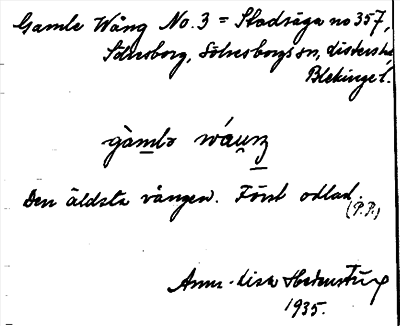 Gamle Wång No. 3 = Stadsäga no 357,
Sölvesborg, Sölvesborgs sn, Listers hd
Blekinge l.
gàmlə wáuŋ
Den äldsta vången. Först odlad.
(P.P.)
Anna-Lisa
1935.